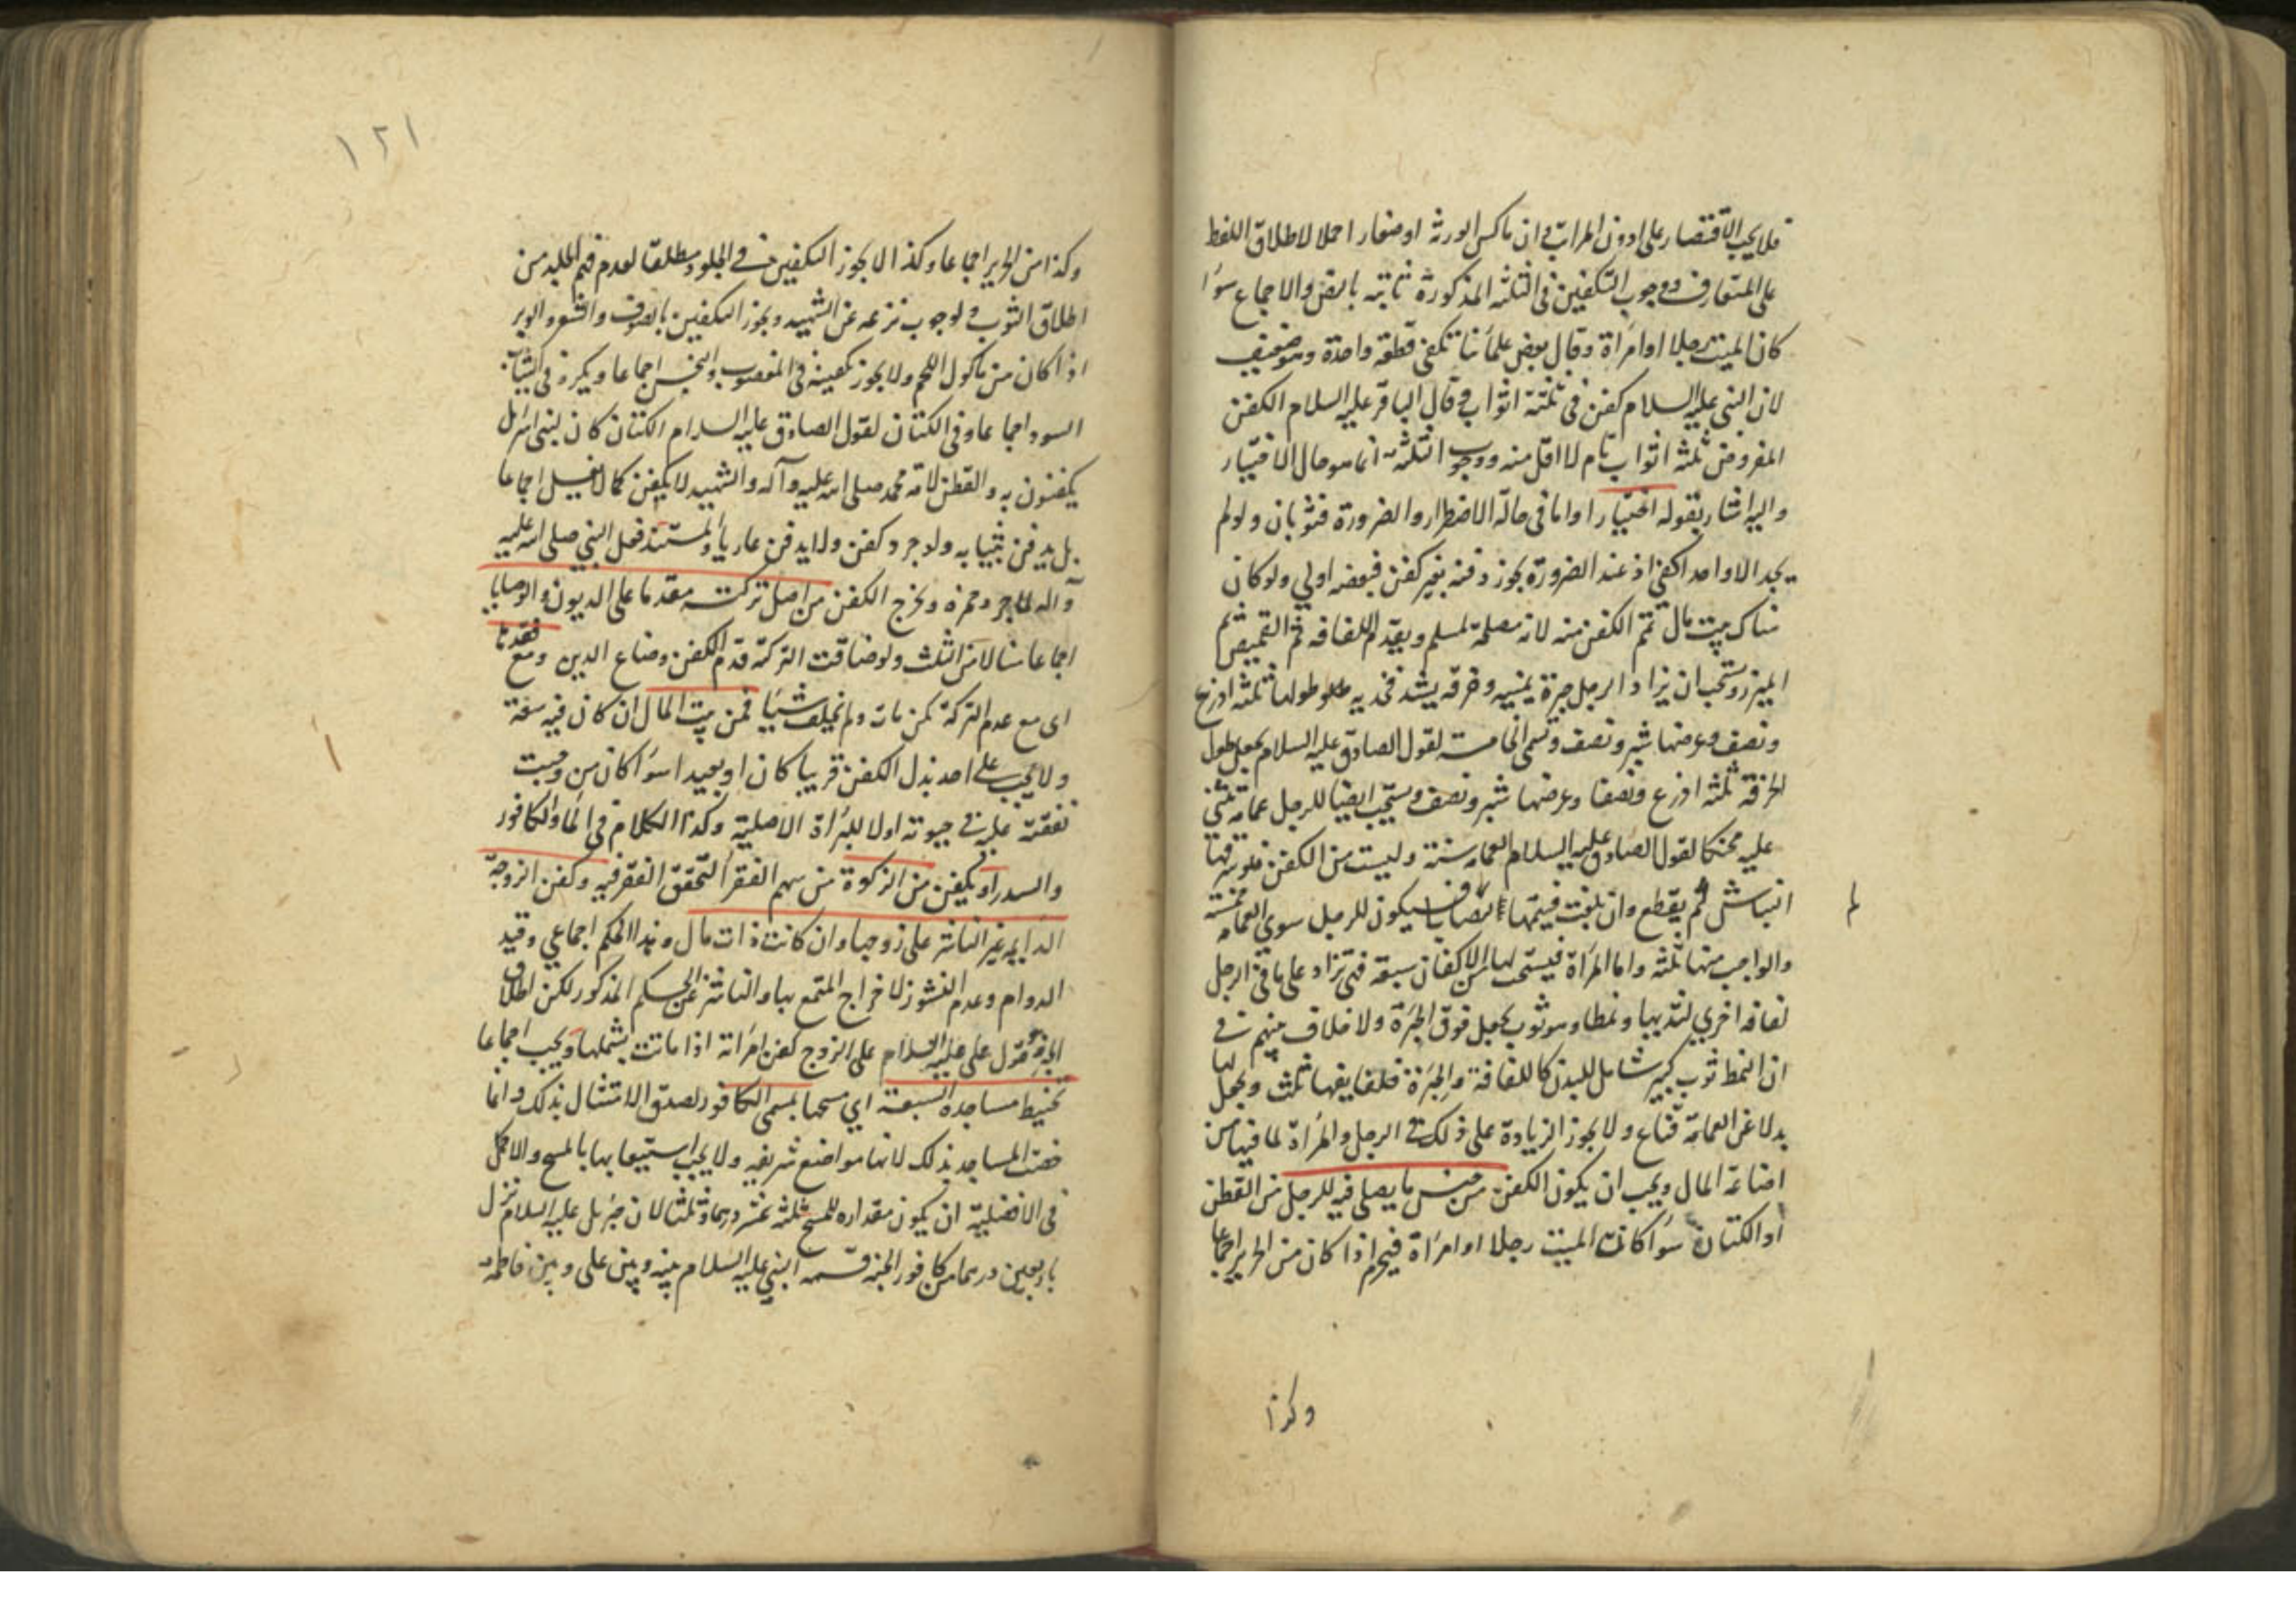 فلا يجب الاقتصار على ادون المراتب وان ماكس الورثه او صغار احملا لاطلاق اللفظ
على المتعارف ووجوب التكفين فى الثلثه المذكورة ثابته بالنص والاجماع سوا
كان الميت رجلا او امراة وقال بعض علمائنا تكفى قطعة واحدة وهو ضعيف
لان النبى عليه السلام كفن فى ثلثة اثواب وقال الباقر عليه السلام الكفن
المفروض ثلثه اثواب تام لا اقل منه ووجوب الثلثه انما هو حال الاختيار
واليه اشار بقوله اختيارا واما فى حالة الاضطرار والضرورة فثوبان ولو لم
يجد الا واحدا كفى اذ عند الضرورة يجوز دفنه بغير كفن فبعضه اولي ولو كان
هناك بيت مال تمم الكفن منه لانه مصلحة لمسلم ويقدم اللفافه ثم القميص ثم
الميزر ويستحب ان يزاد الرجل حبرة يمنيه وخرقه يشد فخديه طولها ثلثه اذرع
ونصف وعرضها شبر ونصف وتسمى الخامسة لقول الصادق عليه السلام يجعل طول
الخرقه ثلثه اذرع ونصفا وعرضها شبر ونصف ويستحب ايضا للرجل عمامة تثنى
عليه محنكا لقول الصادق عليه السلام العمامه سنة وليست من الكفن فلو سرقها
النباش لم يقطع وان بلغت قيمتها النصاب فيكون للرجل سوي العمامه خمسة
لم
والواجب منها ثلثه واما المراة فيستحب لها من الاكفان سبعة فتزاد على ما فى الرجل
لفافه اخري لثدييها ونمطا وهو ثوب يجعل فوق الحبرة ولا خلاف بينهم في
ان النمط ثوب كبير شامل للبدن كاللفافة والحبرة فلفايفها ثلث ويجعل لها
بدلا عن العمامة قناع ولا يجوز الزيادة على ذلك في الرجل والمراة لما فيها من
اضاعة المال ويجب ان يكون الكفن من جنس ما يصلى فيه للرجل من القطن
او الكتان سوا كانت الميت رجلا او امراة فيحرم اذا كان من الحرير اجماعا
وكذا
١٢١
وكذا من الحرير اجماعا وكذا لا يجوز التكفين في الجلود مطلقا لعدم فهم الجلد من
اطلاق الثوب ولوجوب نزعه عن الشهيد ويجوز التكفين بالصوف والشعر والوبر
اذا كان من ماكول اللحم ولا يجوز تكفينه فى المغصوب والنجس اجماعا ويكره فى الثياب
السود اجماعا وفى الكتان لقول الصادق عليه السلام الكتان كان لبنى اسرائل
يكفنون به والقطن لامة محمد صلى الله عليه وآله والشهيد لا يكفن كما لا يغسل اجماعا
بل يدفن بثيابه ولو جرد كفن ولا يدفن عاريا والمستند فعل النبي صلى الله عليه
وآله لما جرد حمزه ويخرج الكفن من اصل تركته مقدما على الديون والوصايا
اجماعا منا لا من الثلث ولو ضاقت التركة قدم الكفن وضاع الدين ومع فقدها
اى مع عدم التركة كمن مات ولم يخلف شيئا فمن بيت المال ان كان فيه سعة
ولا يجب على احد بذل الكفن قريبا كان او بعيدا سوا كان من وجبت
نفقته عليه في حيوته اولا للبراة الاصلية وكذا الكلام فى الما والكافور
والسدر او يكفن من الزكوة من سهم الفقرا لتحقق الفقر فيه وكفن الزوجة
الدايمه غير الناشز على زوجها وان كانت ذات مال وهذا الحكم اجماعي وقيد
الدوام وعدم النشوز لاخراج المتمتع بها والناشز عن الحكم المذكور لكن اطلاق
الخبر وهو قول على عليه السلام على الزوج كفن امراته اذا ماتت يشملها ويجب اجماعا
تحنيط مساجده السبعة اي مسحها بمسمى الكافور لصدق الامتثال بذلك وانما
خصت المساجد بذلك لانها مواضع شريفه ولا يجب استيعابها بالمسح والاكمل
فى الافضلية ان يكون مقداره للمسح ثلثه عشر درهما وثلثا لان جبرئل عليه السلام نزل
باربعين درهما من كافور الجنة قسمه النبي عليه السلام بينه وبين على وبين فاطمه